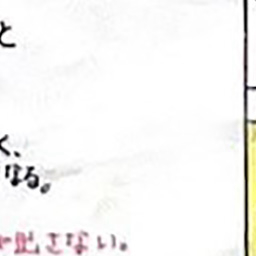 と
く、
なる。
出さない。